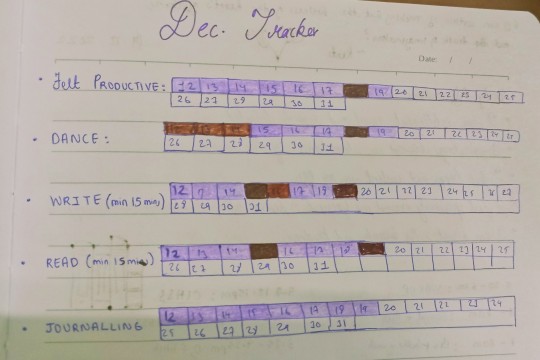 Dec. Tracker
Date: / /
• Felt PRODUCTIVE: 12 13 14 15 16 17 19 20 21 22 23 24 25
26 27 28 29 30 31
• DANCE: 15 16 17 19 20 21 22 23 24 25
26 27 28 29 30 31
• WRITE (min 15 mins) 12 14 17 20 21 22 23 24 25 26 27
28 29 30 31
• READ (min 15 mins) 12 13 14 16 17 18 20 21 22 23 24 25
26 27 28 29 30 31
• JOURNALLING 12 13 14 15 16 17 18 19 20 21 22 23 24
25 26 27 28 29 30 31